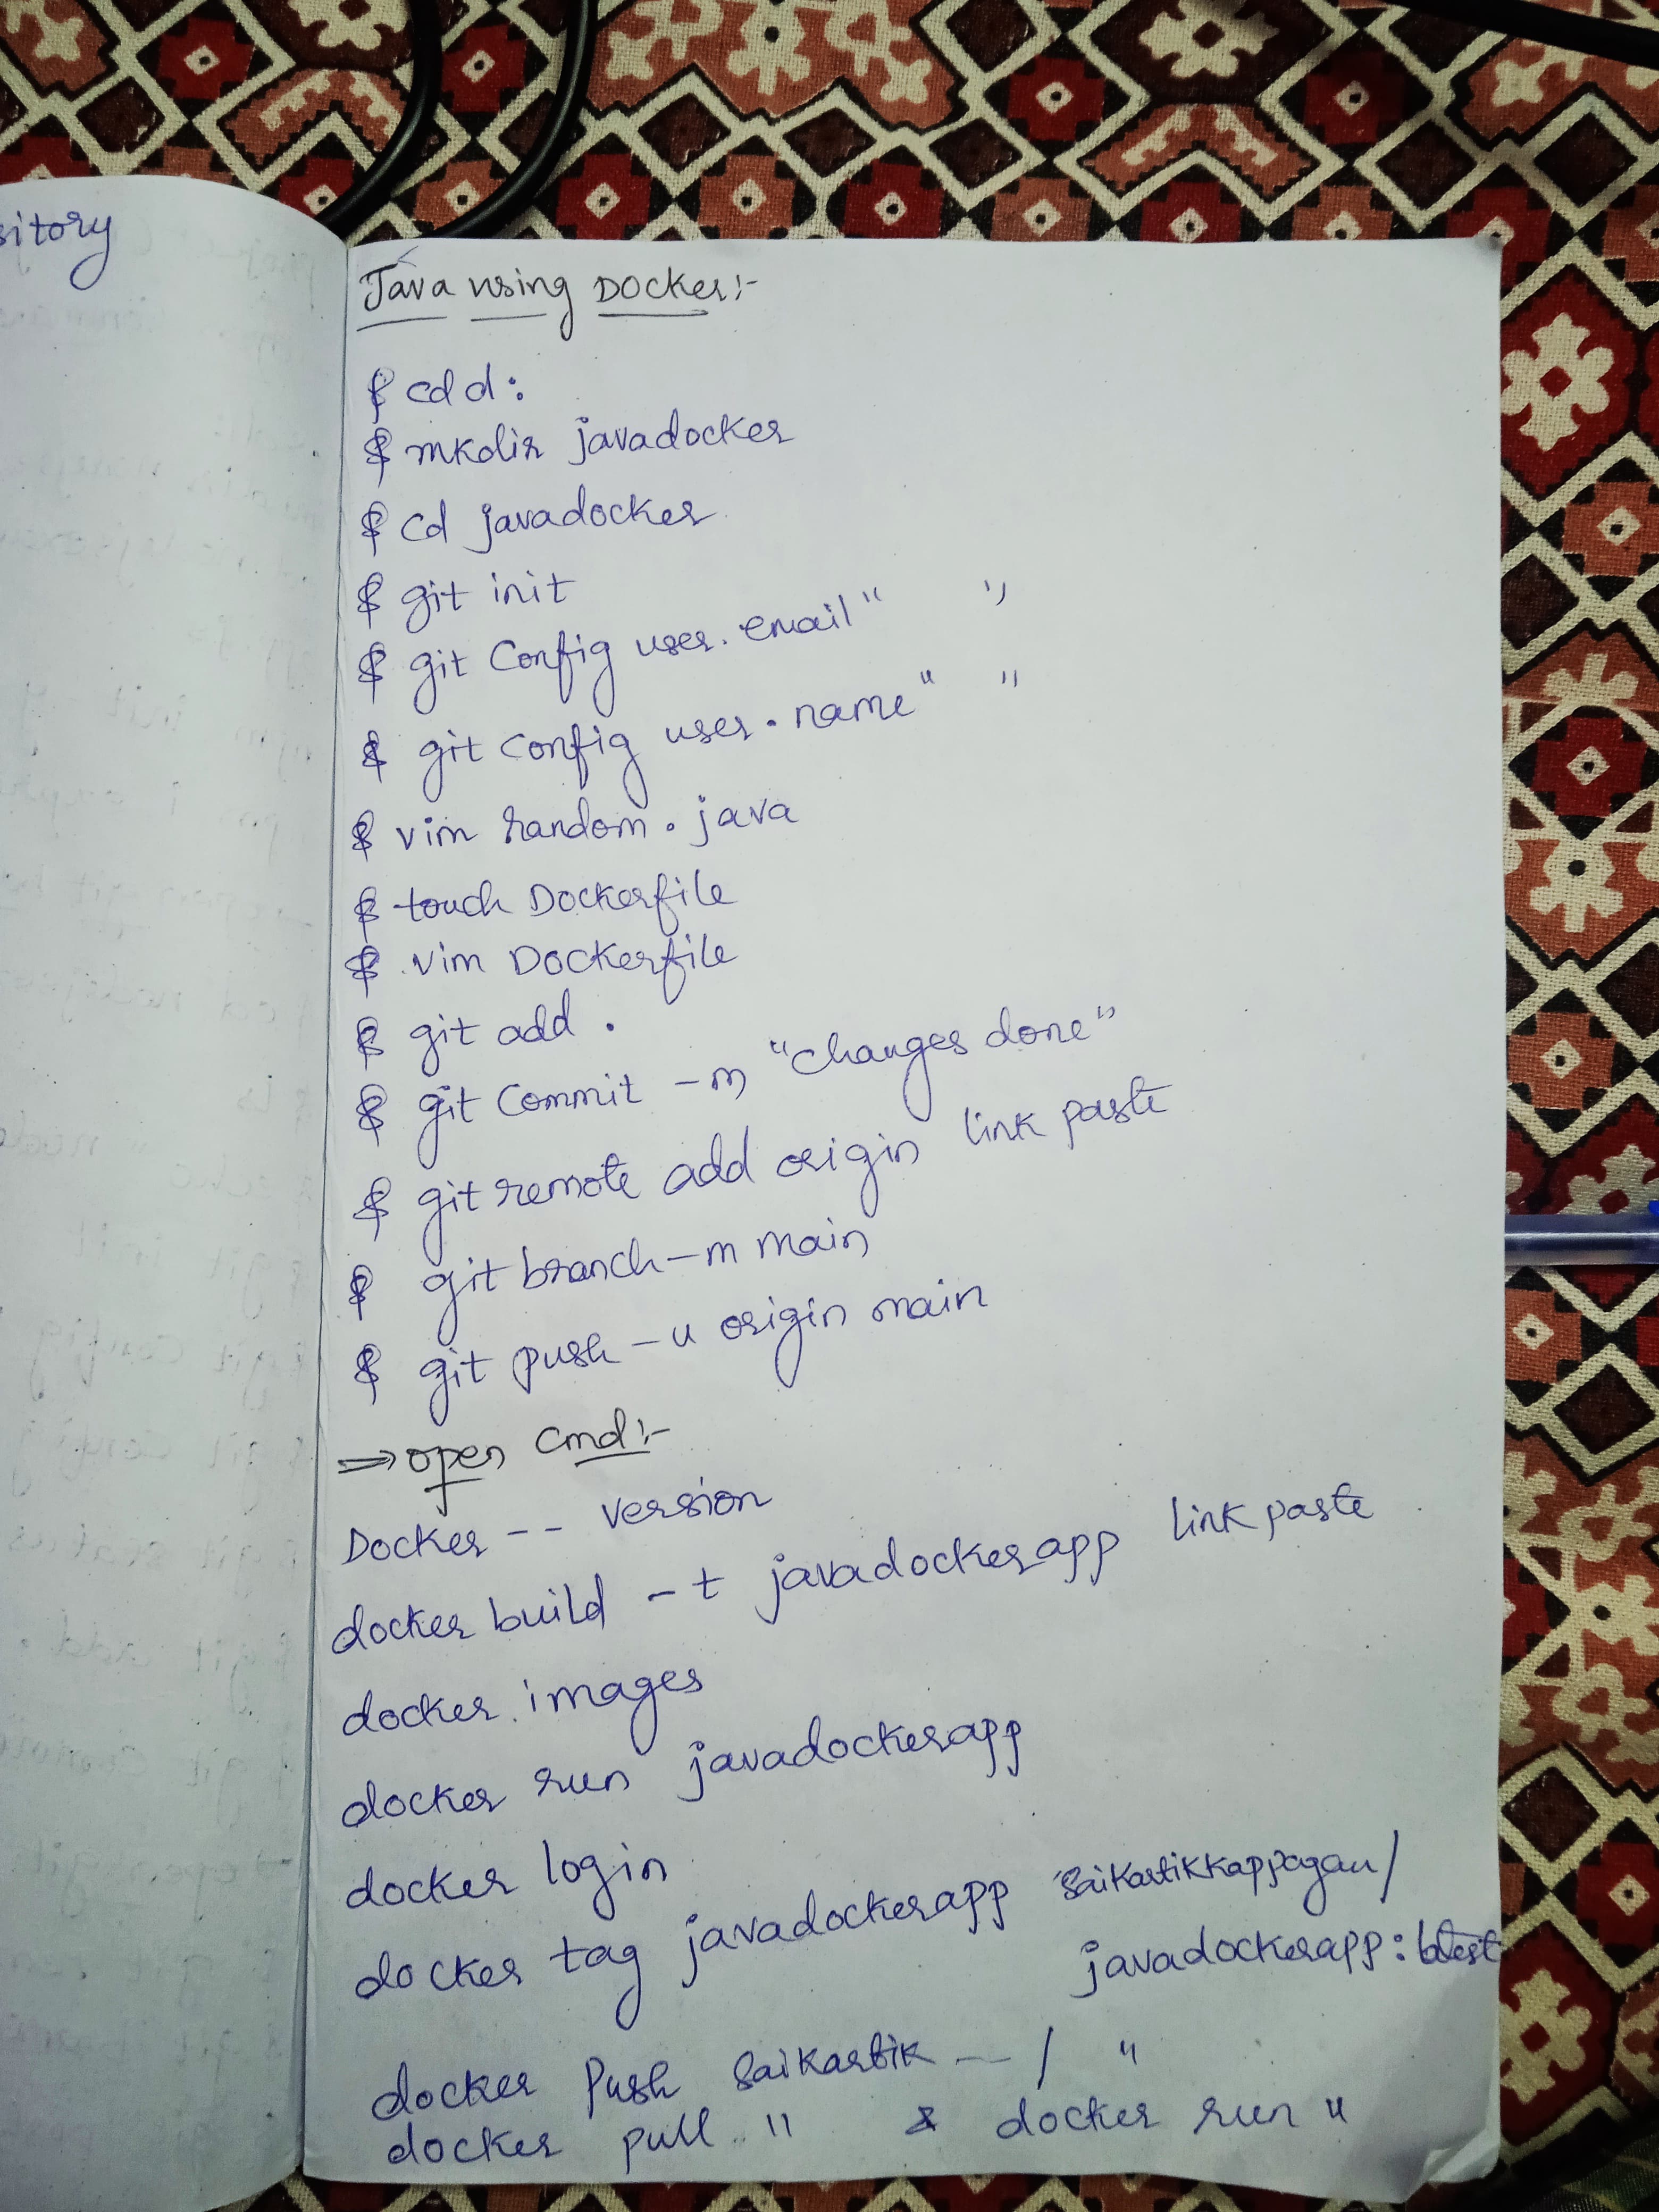 sitory
Java using Docker:-
$ cd d:
$ mkdir javadocker
$ cd javadocker
$ git init
$ git config user.email "     "
$ git config user.name "     "
$ vim random.java
$ touch Dockerfile
$ vim Dockerfile
$ git add .
$ git commit -m "changes done"
$ git remote add origin link paste
$ git branch -m main
$ git push -u origin main
⇒ open cmd:-
Docker -- version
docker build -t javadockerapp link paste
docker images
docker run javadockerapp
docker login
docker tag javadockerapp saikartikkappagan/
javadockerapp:latest
docker push saikartik --- / "
docker pull " & docker run "